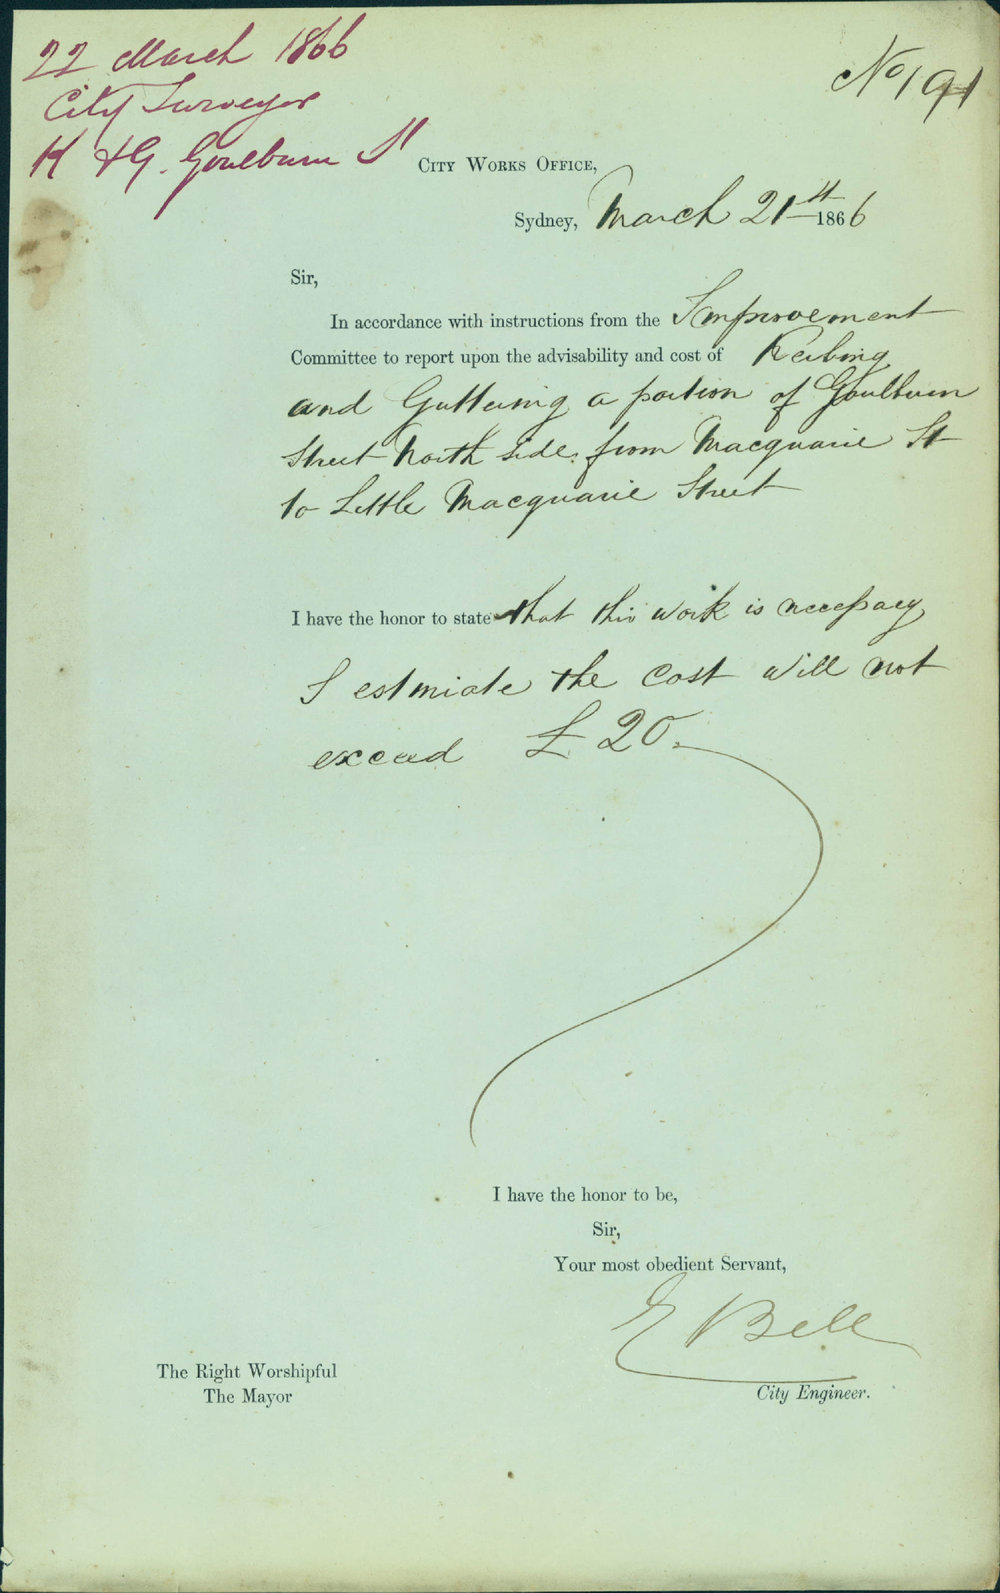 22 March 1866
City Surveyor
K & G. Goulburn St
No 191
City Works Office,
Sydney, March 21st 1866
Sir,
In accordance with instructions from the Improvement
Committee to report upon the advisability and cost of Kerbing
and Guttering a portion of Goulburn
Street North side from Macquarie St
to Little Macquarie Street
I have the honor to state that this work is necessary
I estimate the cost will not
exceed £20.
I have the honor to be,
Sir,
Your most obedient Servant,
E Bell
City Engineer.
The Right Worshipful
The Mayor